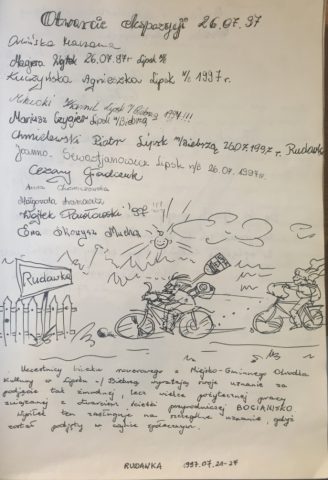 Otwarcie ekspozycji 26.07.97
Marzena
Magiera Zyta 26.07.97r Lipsk n/B
Kuczyńska Agnieszka Lipsk n/B 1997r.
Kamil Lipsk n/Biebrzą 1997!!!
Mariusz Lipsk n/Biebrzą
Chmielewski Piotr Lipsk n/Biebrzą 26.07.1997r. Rudawka
Joanna Lipsk n/B 26.07.1997r.
Cezary
Anna
Małgorzata
Wojtek Pawłowski '97!!!
Ewa Mucha
Rudawka
Uczestnicy biwaku rowerowego z Miejsko-Gminnego Ośrodka
Kultury w Lipsku n/Biebrzą wyrażają swoje uznanie za
podjęcie tak żmudnej, lecz wielce pożytecznej pracy
związanej z otwarciem ścieżki przyrodniczej BOCIANISKO
Wysiłek ten zasługuje na szczególne uznanie, gdyż
został podjęty w czynie społecznym.
RUDAWKA 1997.07.21-27